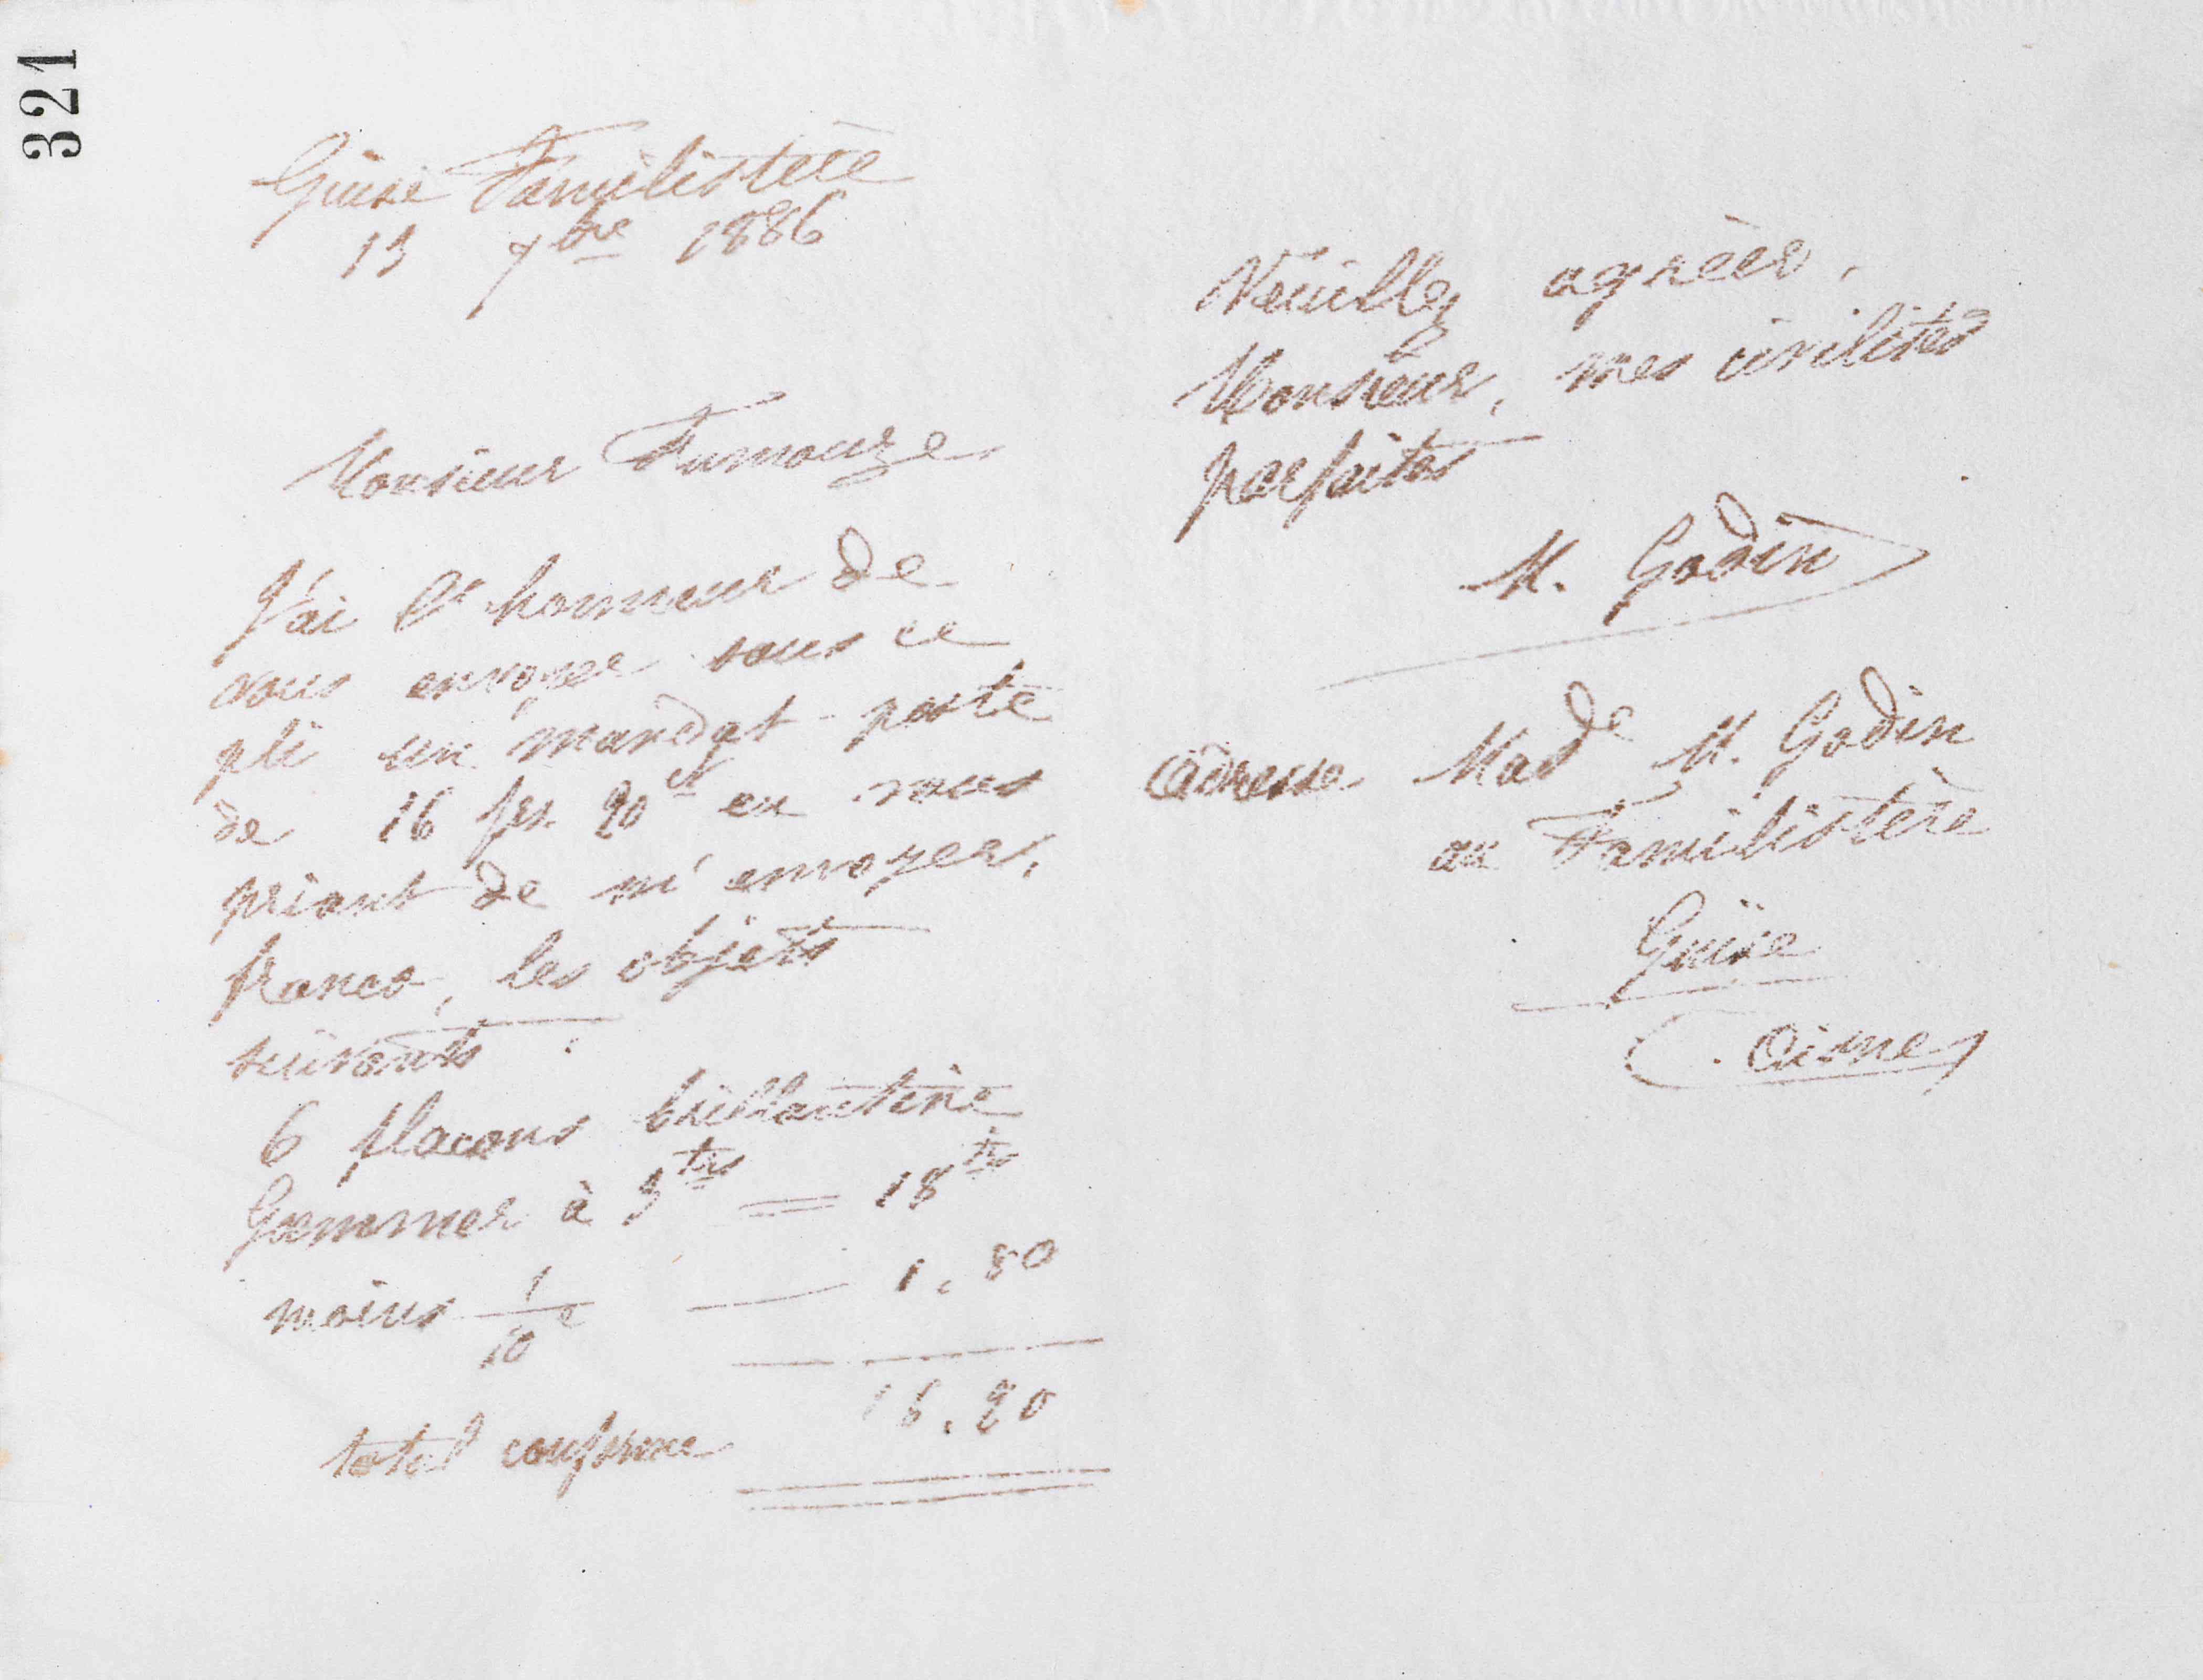 321
Guise Familistère
13 7bre 1886
Monsieur Fumouze
J'ai l'honneur de
vous envoyer sous ce
pli un mandat-poste
de 16 frs. 20 ct en vous
priant de m'envoyer,
franco, les objets
suivants :
6 flacons brillantine
Gommer à 3 frs = 18 frs
moins 1/10e — 1.80
16.20
total conforme
Veuillez agréer,
Monsieur, mes civilités
parfaites
M. Godin
adresse Made M. Godin
au Familistère
Guise
(Aisne)